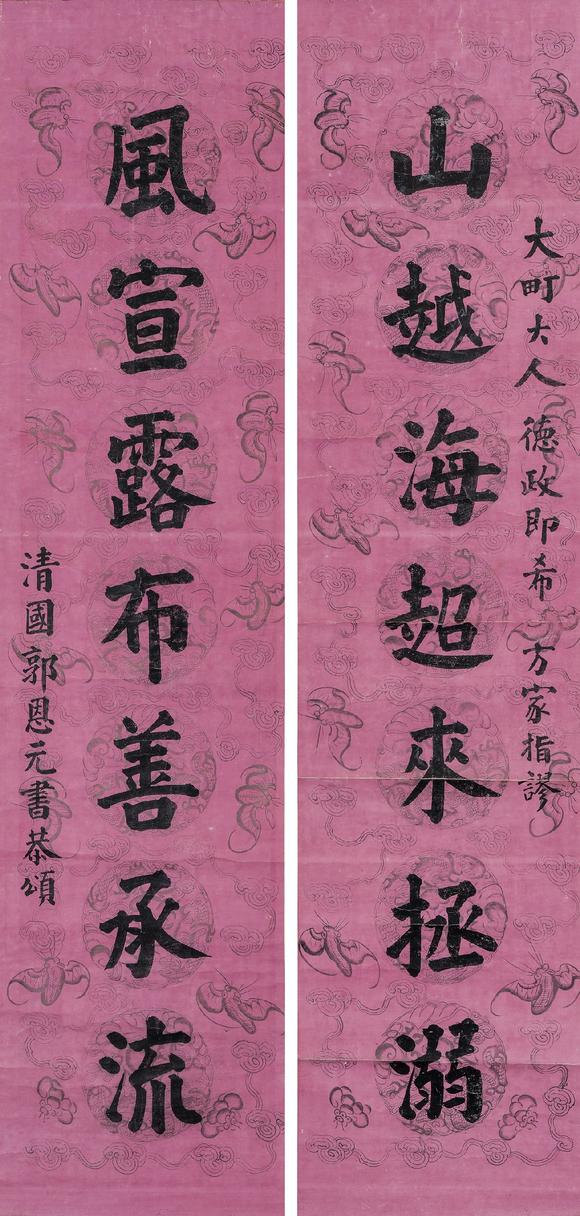 大町大人 德政即希 方家指謬
山越海超來拯溺
風宣露布善承流
清國郭恩元書恭頌